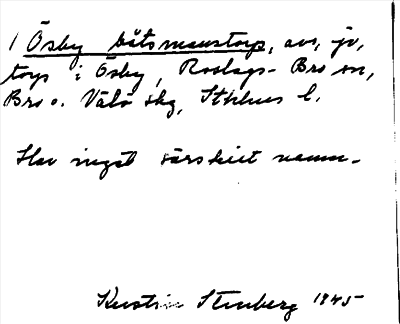 1 Ösby båtsmanstorp, avs, jo,
torp i Ösby, Roslags-Bro sn,
Bro o. Vätö skg, Sthlms l.
Har inget särskilt namn.
Kerstin Stenberg 1945